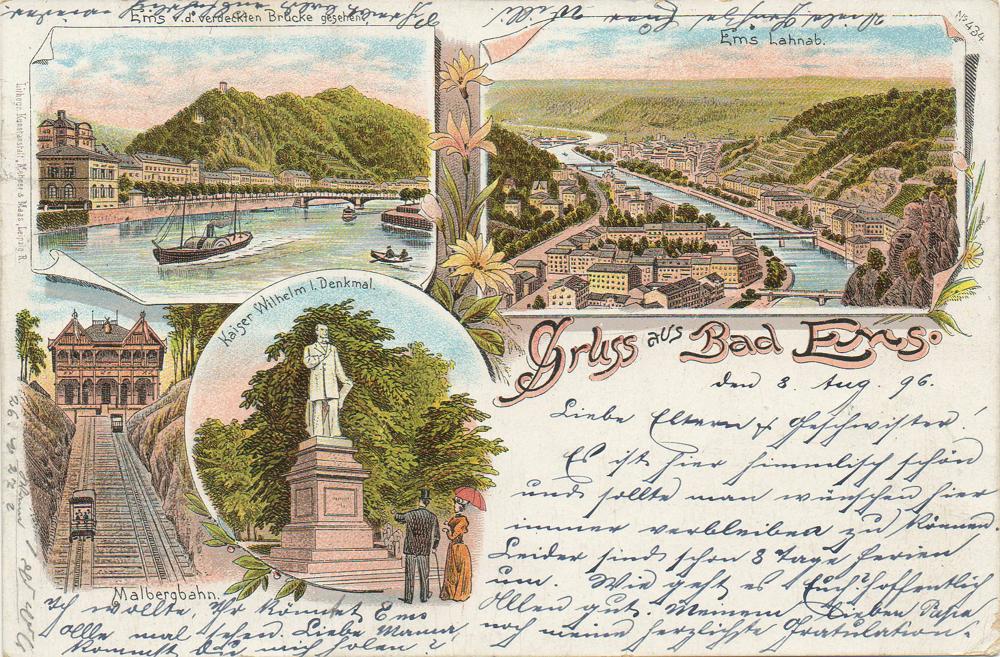 Ems v. d. verdeckten Brücke gesehen.
Ems Lahnab.
No 434
Lithogr. Kunstanstalt, Metzger & Maas, Leipzig R.
Kaiser Wilhelm I. Denkmal.
Malbergbahn.
Gruss aus Bad Ems.
den 8. Aug. 96.
Liebe Eltern & Geschwister!
Es ist hier himmlisch schön
und sollte man wünschen hier
immer verbleiben zu können
Leider sind schon 3 Tage Ferien
um. Wie geht es Euch? hoffentlich
Allen gut. Meinem lieben Papa
noch meine herzlichste Gratulation.
Ich wollte, Ihr könntet Ems
Alle mal sehen. Liebe Mama,
kommst Du mich holen?
Viele Grüße Euer
Willi